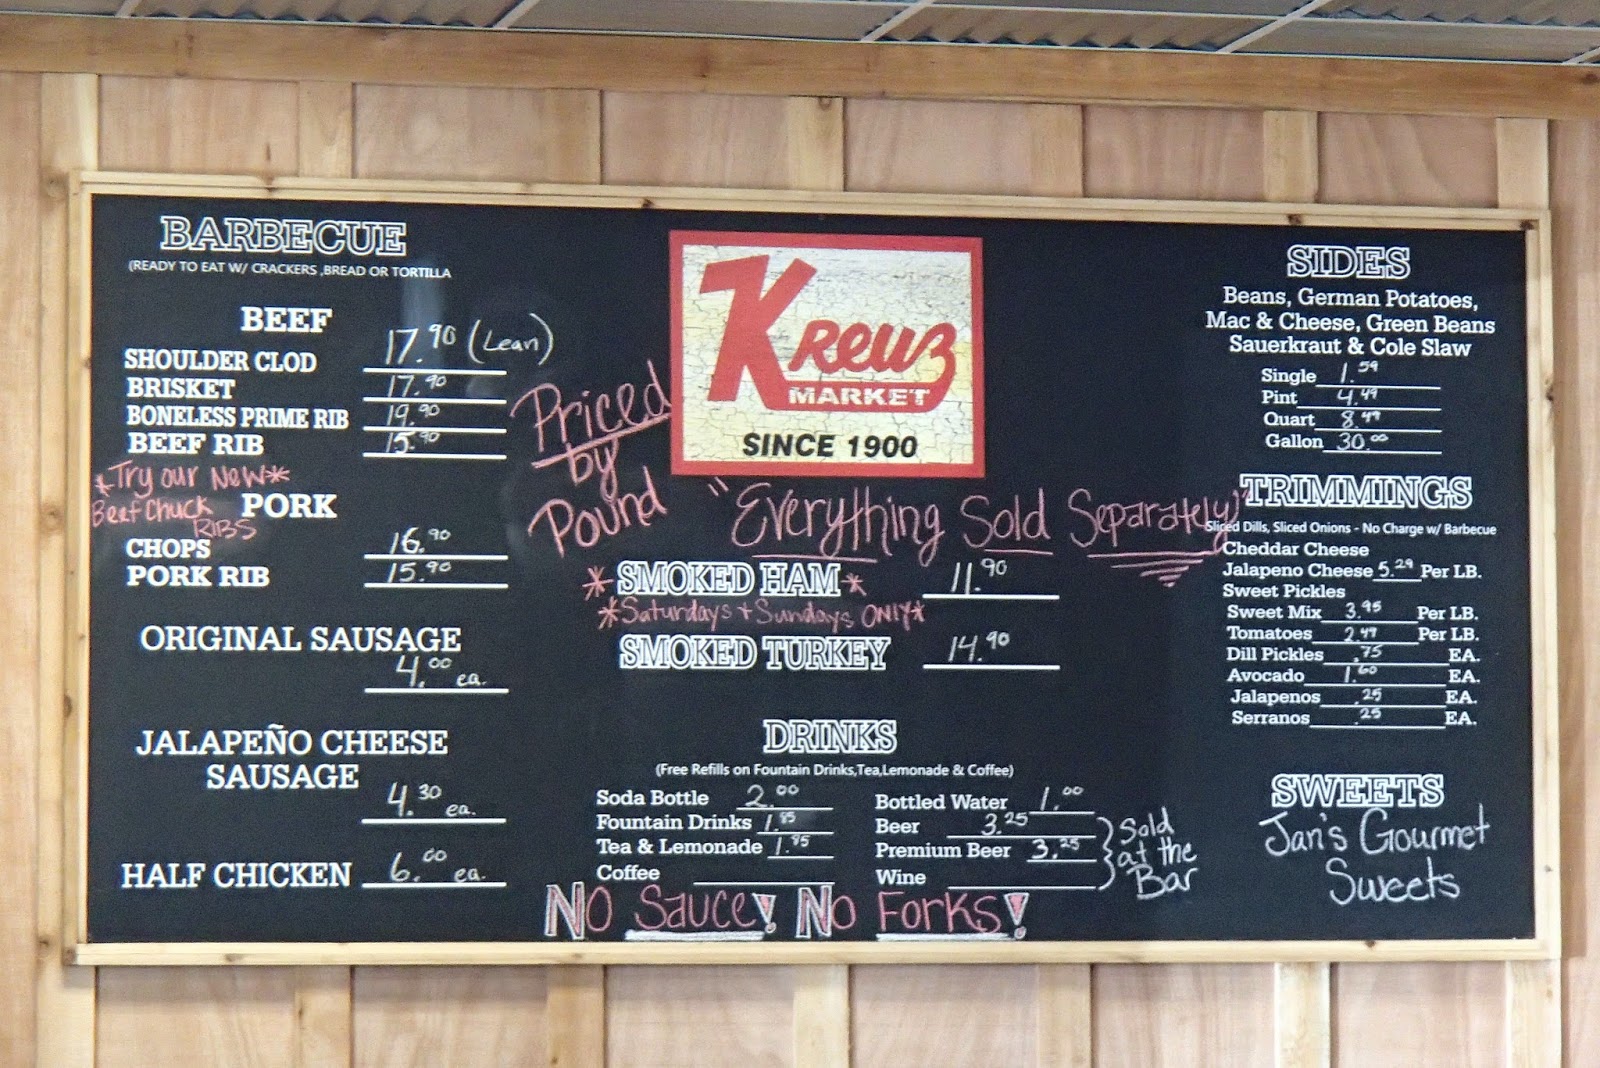 BARBECUE
(READY TO EAT W/ CRACKERS ,BREAD OR TORTILLA
BEEF
SHOULDER CLOD 17.90 (Lean)
BRISKET 17.90
BONELESS PRIME RIB 19.90
BEEF RIB 15.90
*Try our New*
Beef Chuck
RIBS
PORK
CHOPS 16.90
PORK RIB 15.90
ORIGINAL SAUSAGE
4.00 ea.
JALAPEÑO CHEESE
SAUSAGE
4.30 ea.
HALF CHICKEN 6.00 ea.
Priced
by
Pound
Kreuz
MARKET
SINCE 1900
"Everything Sold Separately"
*SMOKED HAM* 11.90
*Saturdays + Sundays ONLY*
SMOKED TURKEY 14.90
DRINKS
(Free Refills on Fountain Drinks,Tea,Lemonade & Coffee)
Soda Bottle 2.00
Fountain Drinks 1.85
Tea & Lemonade 1.85
Coffee
Bottled Water 1.00
Beer 3.25
Premium Beer 3.25
Wine
Sold
at the
Bar
NO Sauce! NO Forks!
SIDES
Beans, German Potatoes,
Mac & Cheese, Green Beans
Sauerkraut & Cole Slaw
Single 1.59
Pint 4.49
Quart 8.49
Gallon 30.00
TRIMMINGS
Sliced Dills, Sliced Onions - No Charge w/ Barbecue
Cheddar Cheese
Jalapeno Cheese 5.29 Per LB.
Sweet Pickles
Sweet Mix 3.95 Per LB.
Tomatoes 2.49 Per LB.
Dill Pickles .75 EA.
Avocado 1.60 EA.
Jalapenos .25 EA.
Serranos .25 EA.
SWEETS
Jan's Gourmet
Sweets